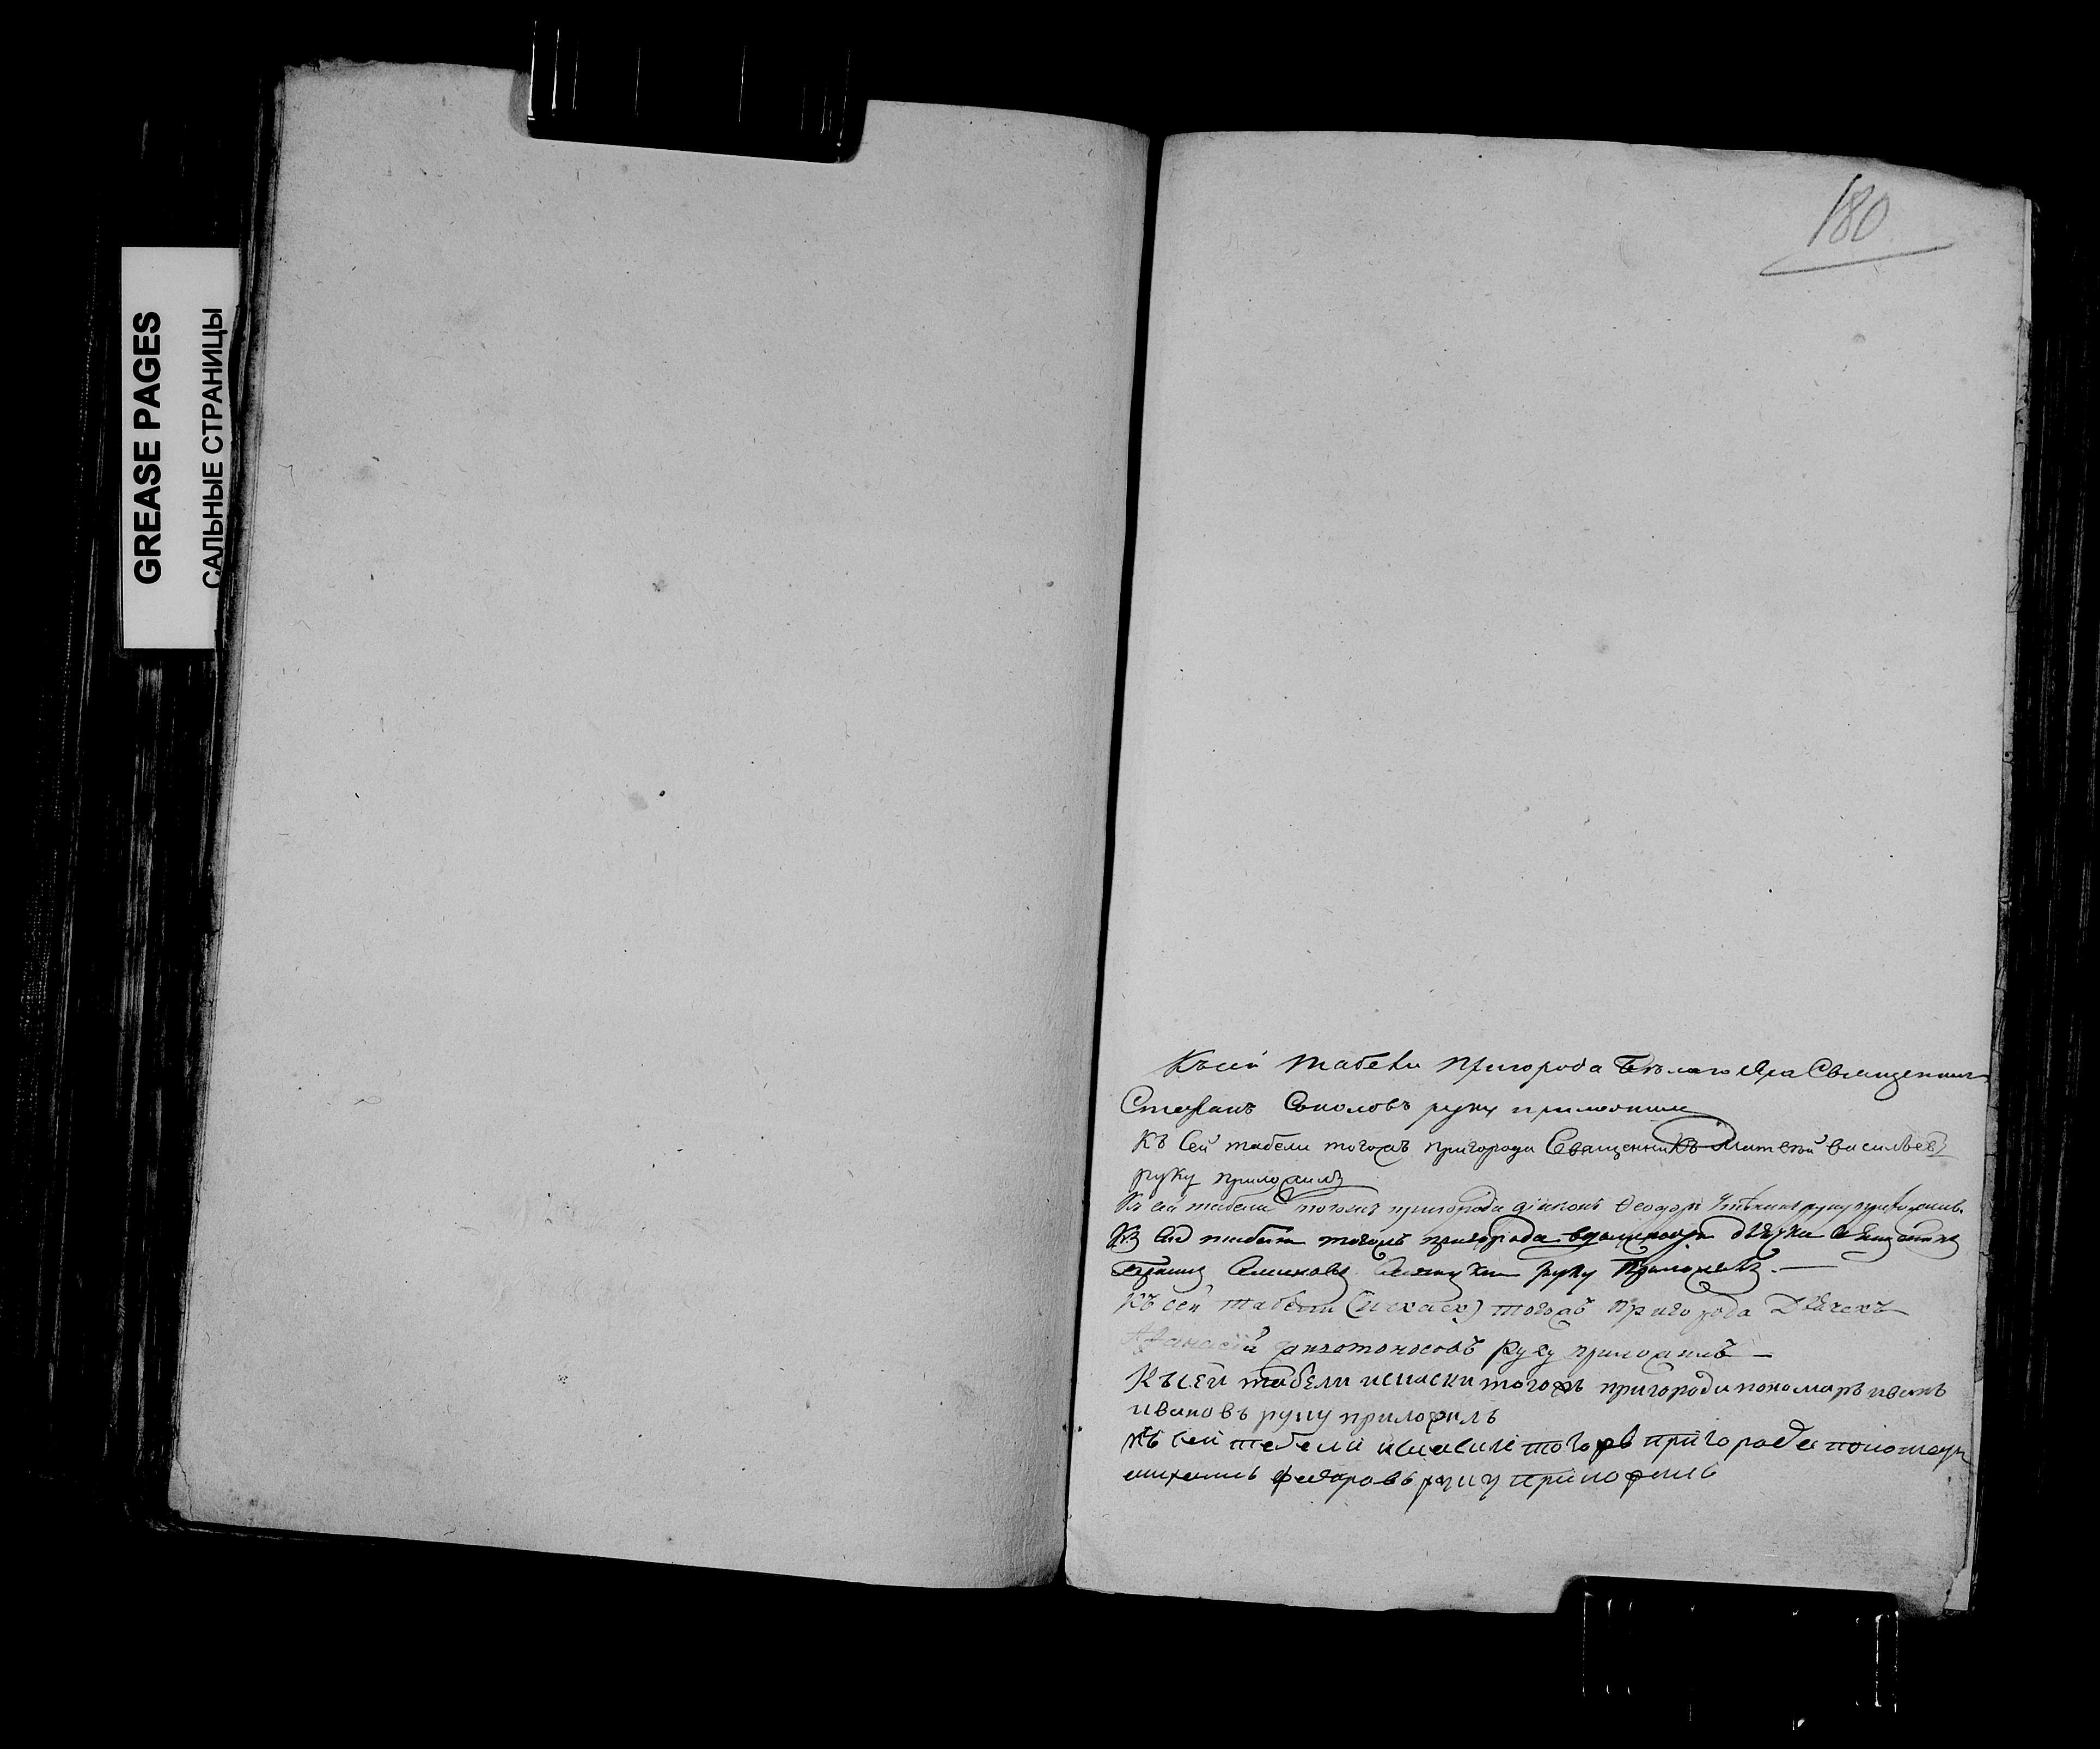 GREASE PAGES
САЛЬНЫЕ СТРАНИЦЫ
180
Къ сей табели пригорода Белаго Яра Священник
Стефанъ Соколовъ руку приложилъ
Къ Сей табели тогожъ пригорода Священникъ Матвей васильевъ
руку приложилъ
Къ сей табели тогожъ пригорода діаконъ Феодоръ руку приложилъ
Къ сей табели тогожъ пригорода дьячка
руку Приложилъ
Къ сей табели тогожъ Пригорода Дьячекъ
Афанасій руку приложилъ
Къ сей табели исписки тогожъ пригорода пономарь иванъ
ивановъ руку приложилъ
къ сей табели тогожъ пригорода пономарь
михаилъ федоровъ руку приложилъ